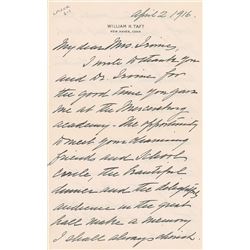 April 2, 1916.
WILLIAM H. TAFT
NEW HAVEN, CONN
My dear Mrs. Irvine,
I write to thank you
and Dr. Irvine for
the good time you gave
me at the Mercersburg
academy. The opportunity
to meet your charming
friends and School
circle, the beautiful
dinner and the delightful
audience in the great
hall make a memory
I shall always cherish.